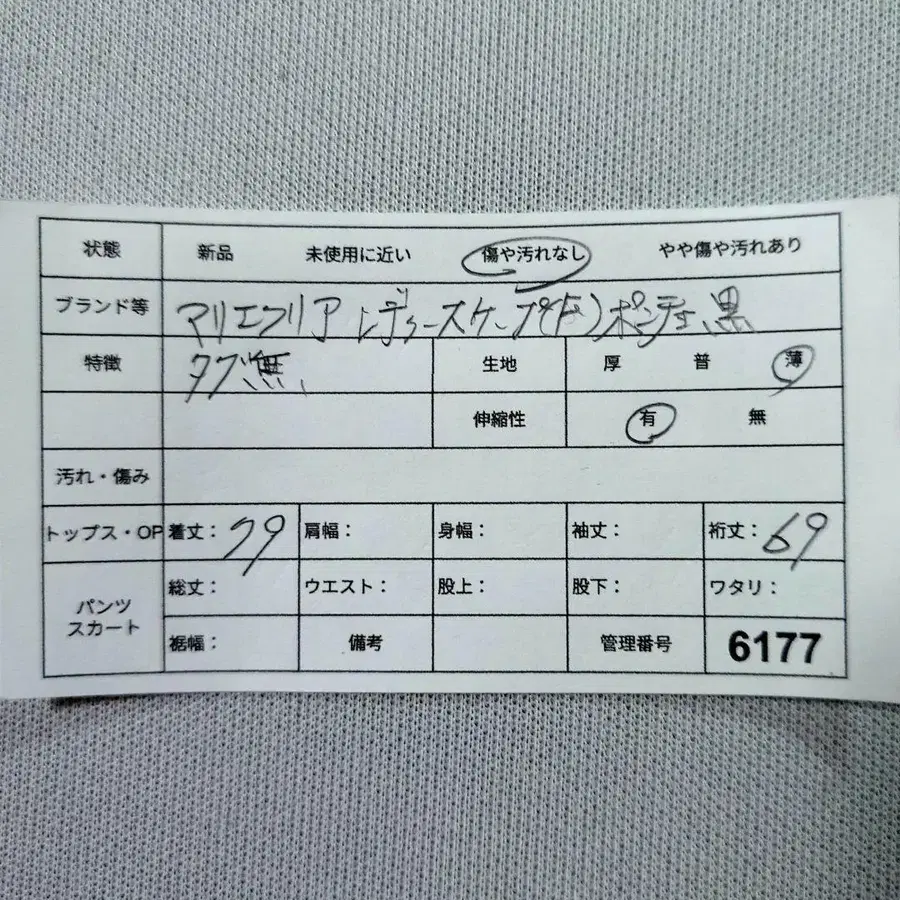 状態 新品 未使用に近い 傷や汚れなし やや傷や汚れあり
ブランド等 マリエフリア レディースケープ(F)ポンチョ、黒
特徴 タブ無、 生地 厚 普 薄
伸縮性 有 無
汚れ・傷み
トップス・OP 着丈：79 肩幅： 身幅： 袖丈： 裄丈：69
パンツ スカート 総丈： ウエスト： 股上： 股下： ワタリ：
裾幅： 備考 管理番号 6177